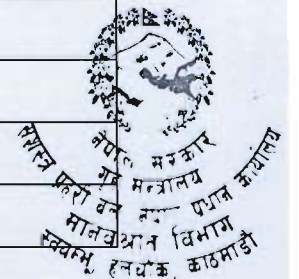 नेपाल सरकार
गृह मन्त्रालय
सशस्त्र प्रहरी बल नेपाल प्रधान कार्यालय
मानव श्रोत विभाग
स्वयम्भू हलचोक काठमाडौं